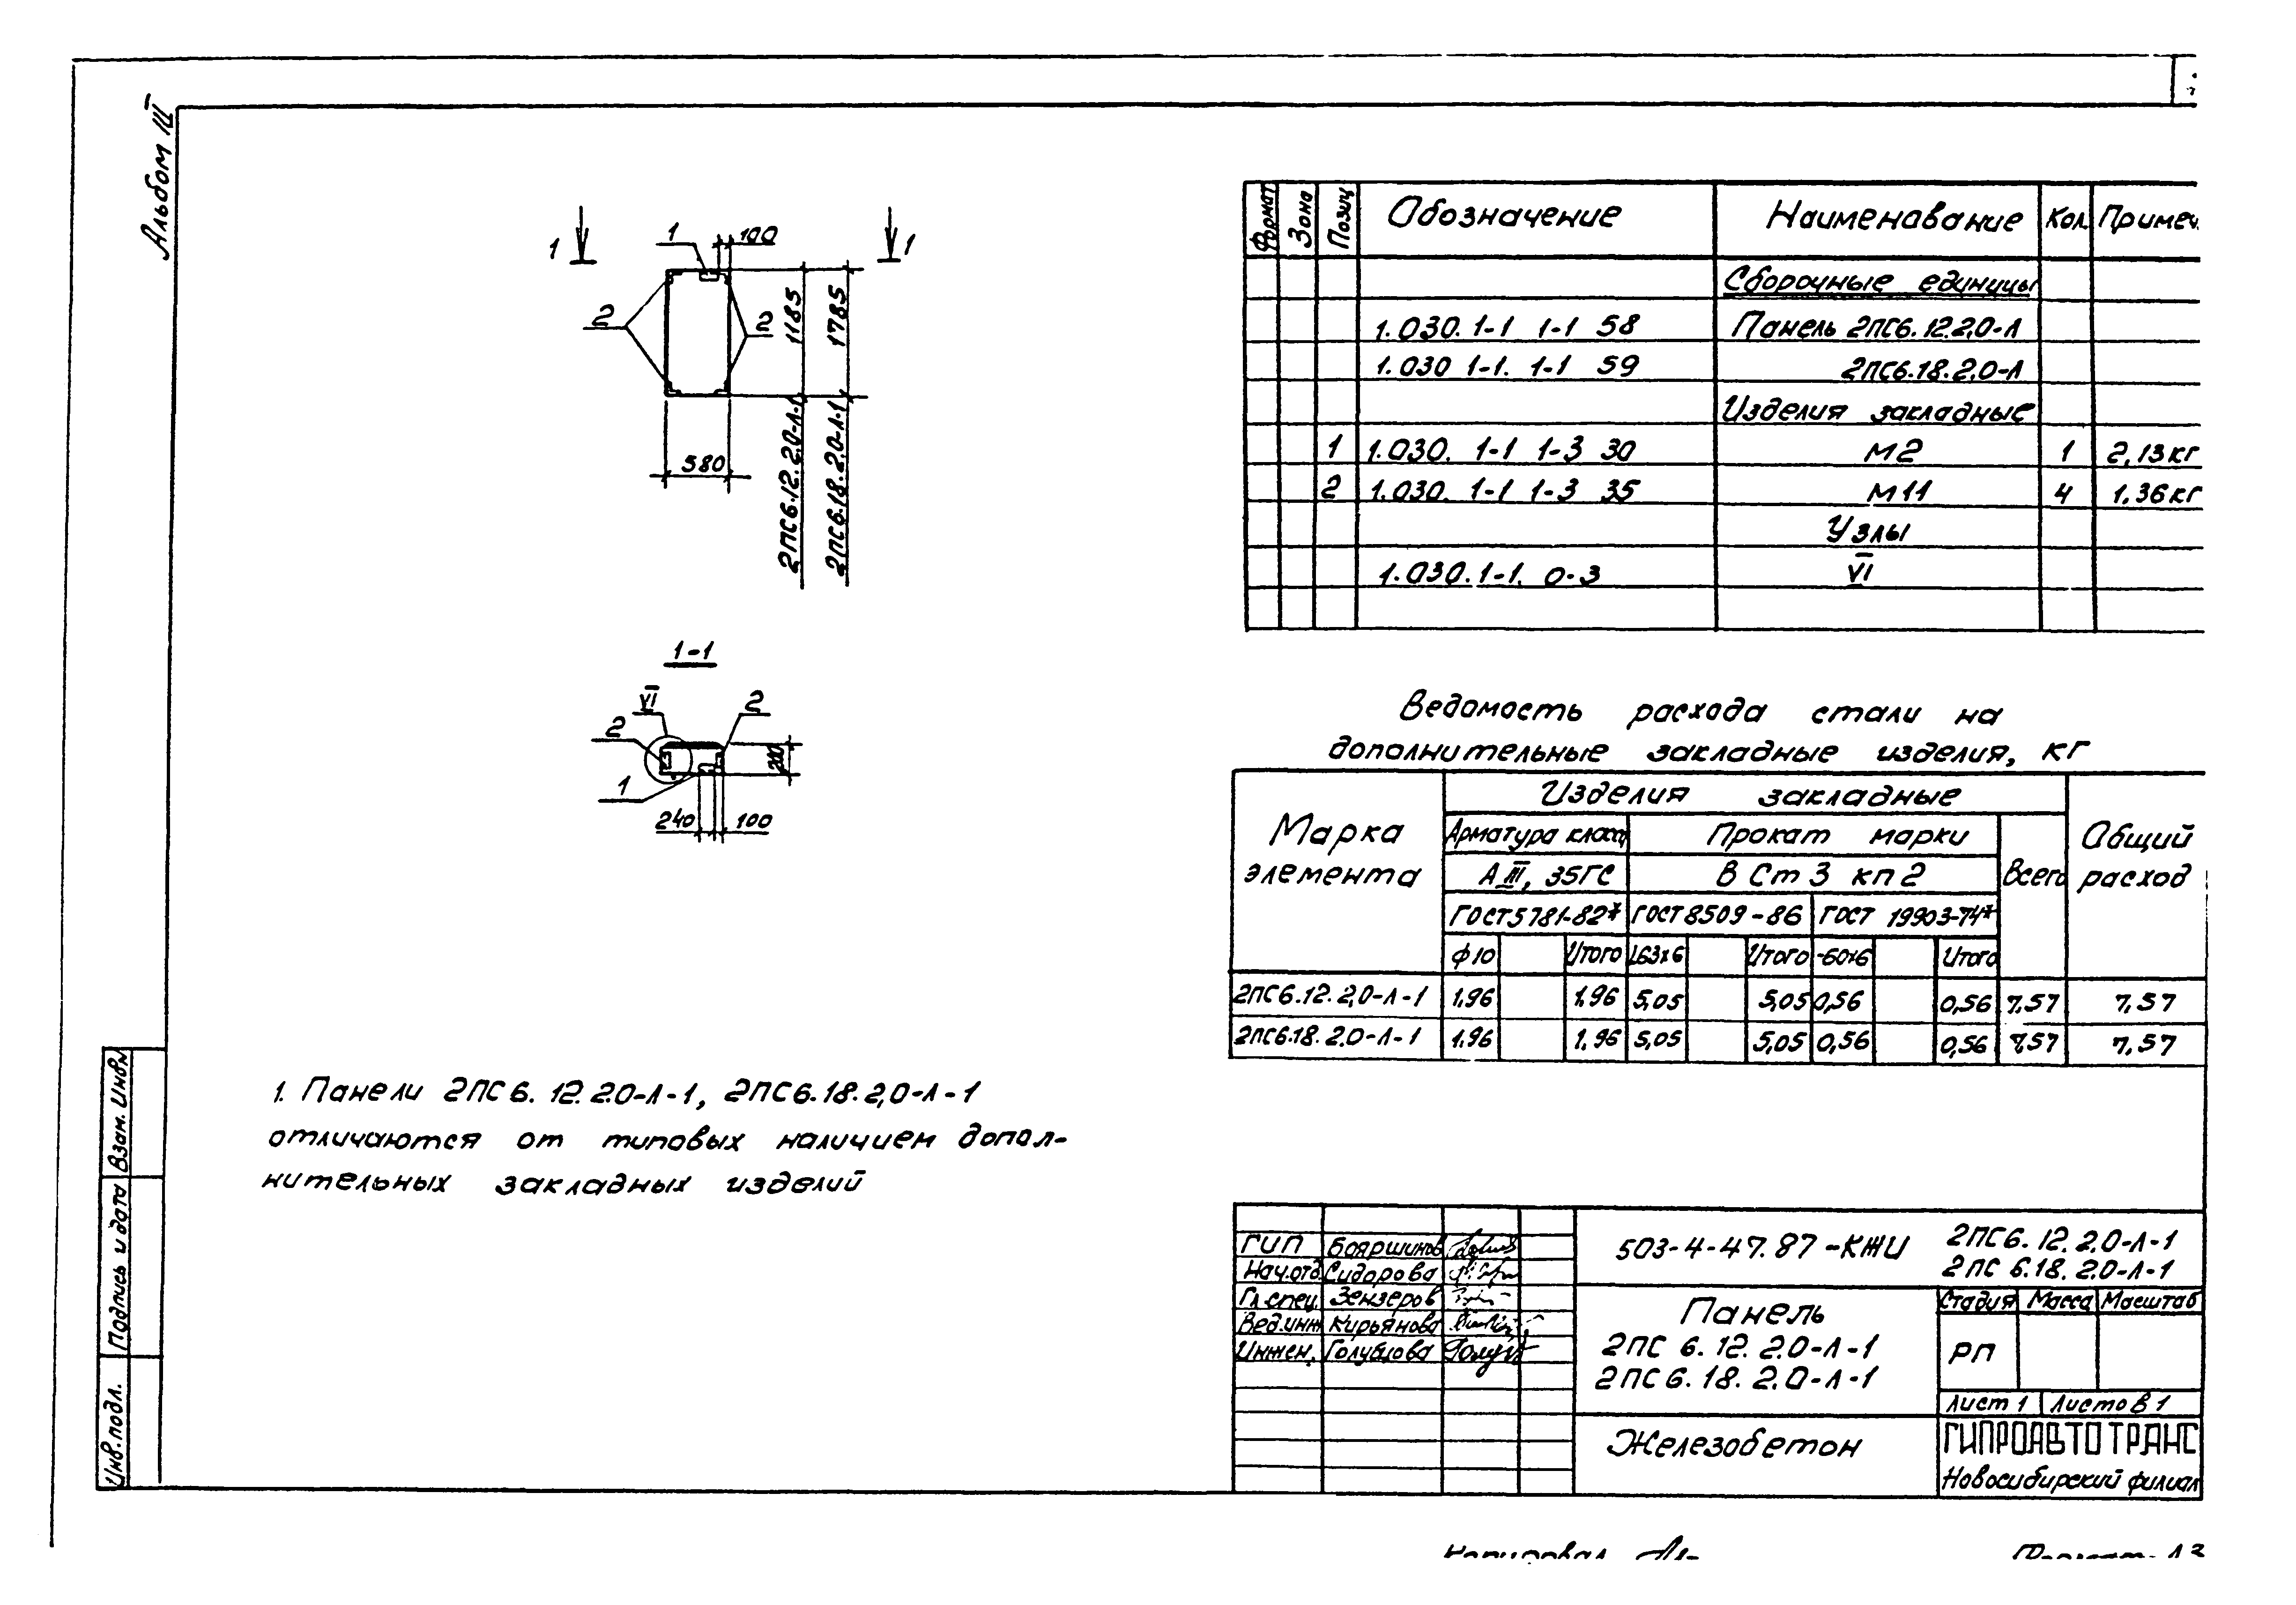 Альбом III
1
1
1
100
2
2
1185
1785
580
2ПС6.12.2.0-Л-1
2ПС6.18.2.0-Л-1
1-1
VI
2
2
1
200
240
100
1. Панели 2ПС6.12.2.0-Л-1, 2ПС6.18.2,0-Л-1
отличаются от типовых наличием допол-
нительных закладных изделий
Формат Зона Позиц Обозначение Наименавание Кол. Примеч
Сборочные единицы
1.030.1-1 1-1 58 Панель 2ПС6.12.2.0-Л
1.030 1-1. 1-1 59 2ПС6.18.2.0-Л
Изделия закладные
1 1.030. 1-1 1-3 30 М2 1 2,13кг
2 1.030. 1-1 1-3 35 М11 4 1.36кг
Узлы
1.030.1-1. 0-3 VI
Ведомость расхода стали на
дополнительные закладные изделия, кг
Марка элемента Изделия закладные Общий расход
Арматура класса Прокат марки Всего
А III, 35ГС В Ст 3 кп 2
ГОСТ 5781-82* ГОСТ 8509-86 ГОСТ 19903-74*
ф10 Итого L63х6 Итого -60х6 Итого
2ПС6.12.2,0-Л-1 1,96 1,96 5,05 5,05 0,56 0,56 7,57 7,57
2ПС6.18.2.0-Л-1 1.96 1,96 5,05 5,05 0,56 0,56 7,57 7,57
ГИП Бояршинов
Нач.отд. Сидорова
Гл.спец. Зензеров
Вед.инж Кирьянова
Инжен. Голубцова
503-4-47.87-КЖИ 2ПС6.12.2.0-Л-1
2ПС 6.18.2.0-Л-1
Панель
2ПС 6.12.2.0-Л-1
2ПС6.18.2.0-Л-1
Стадия Масса Масштаб
РП
Лист 1 Листов 1
Железобетон
ГИПРОАВТОТРАНС
Новосибирский филиал
Взам. Инв.
Подпись и дата
Инв.подл.